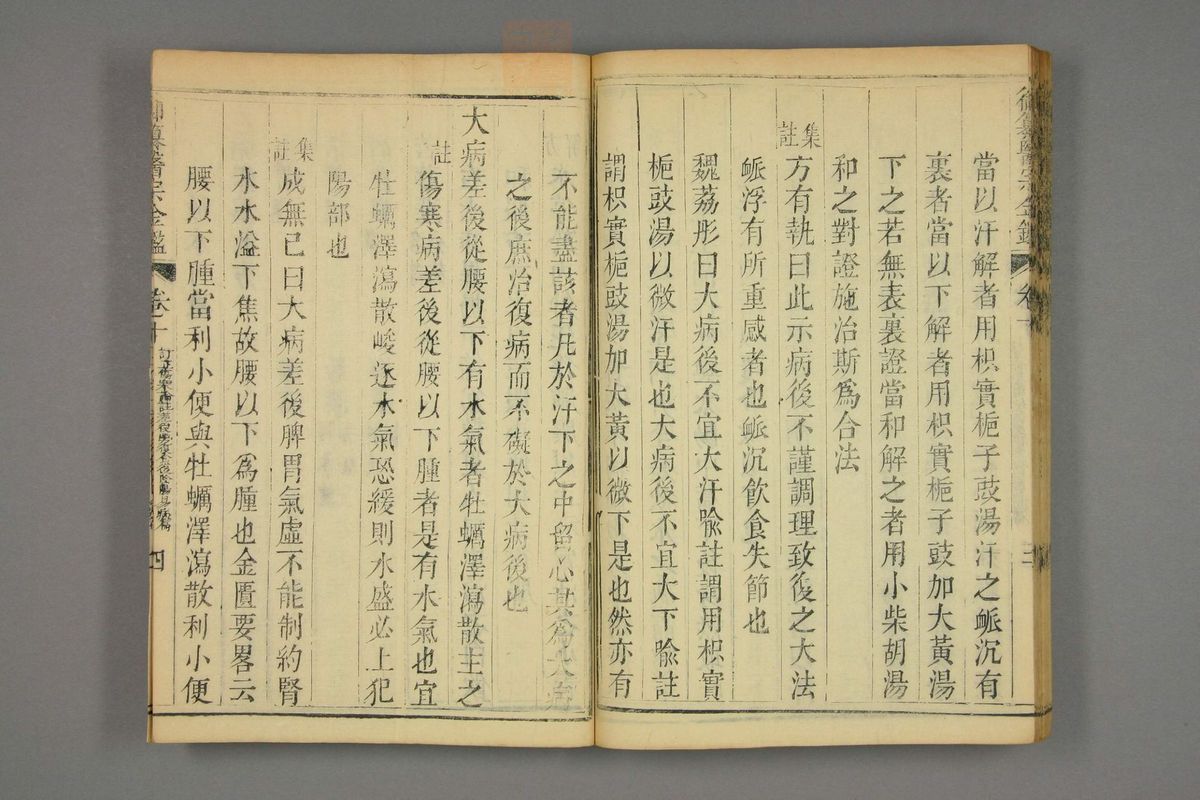 當以汗解者用枳實梔子豉湯汗之脈沉有
裏者當以下解者用枳實梔子豉加大黃湯
下之若無表裏證當和解之者用小柴胡湯
和之對證施治斯爲合法
集註
方有執曰此示病後不謹調理致復之大法
脈浮有所重感者也脈沉飲食失節也
魏荔彤曰大病後不宜大汗喩註謂用枳實
梔豉湯以微汗是也大病後不宜大下喩註
謂枳實梔豉湯加大黃以微下是也然亦有
不能盡該者凡於汗下之中留心其爲大病
之後庶治復病而不礙於大病後也
大病差後從腰以下有水氣者牡蠣澤瀉散主之
註
傷寒病差後從腰以下腫者是有水氣也宜
牡蠣澤瀉散峻逐水氣恐緩則水盛必上犯
陽部也
集註
成無己曰大病差後脾胃氣虛不能制約腎
水水溢下焦故腰以下爲腫也金匱要畧云
腰以下腫當利小便與牡蠣澤瀉散利小便
御纂醫宗金鑑
卷十
四